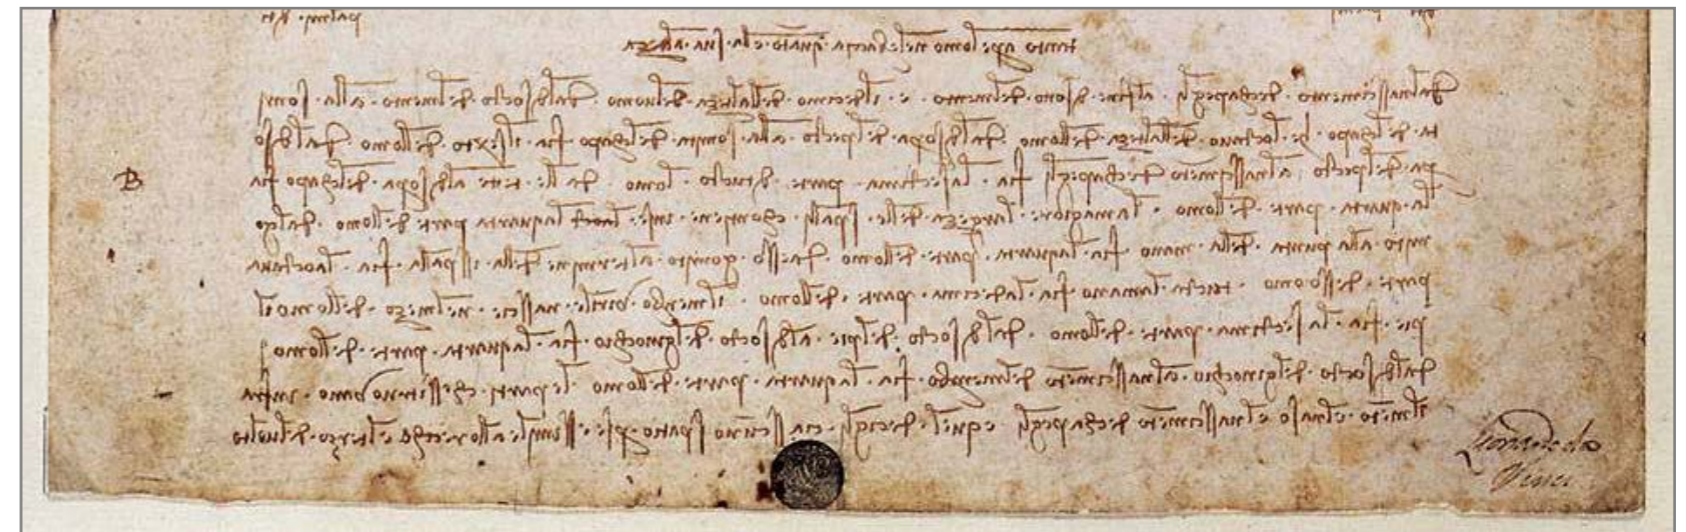 tanto apre l'omo nelle braccia quanto è la sua altezza
dal nasscimento de capegli al fine di sotto del mento è il decimo dell'altezza del uomo dal di sotto del mento alla som
mità del capo he l'octavo dell'altezza dell'omo dal di sopra del petto alla somità del capo fia il sexto dell'omo dal di so
pra del petto al nasscimento de capegli fia la settima parte di tutto l'omo dalle tette al di sopra del capo fia
la quarta parte dell'omo la maggiore larghezza delle spalli contiene in sè la oct la quarta parte dell'omo dal go
mito alla punta della mano fia la quarta parte dell'omo da esso gomito al termine della isspalla fia la octava
parte d'esso omo tutta la mano fia la decima parte dell'omo il membro virile nasscie nel mezzo dell'omo il
piè fia la septima parte dell'omo dal di sotto del piè al di sotto del ginochio fia la quarta parte dell'omo
dal di sotto del ginochio al nasscimento del membro fia la quarta parte dell'omo le parti che ssi truovano infra
il mento e 'l naso e 'l nasscimento de capegli e quel de cigli ciasscuno spatio per se è ssimile all'orecchio e 'l terzo del volto
B
Leonardo da
Vinci